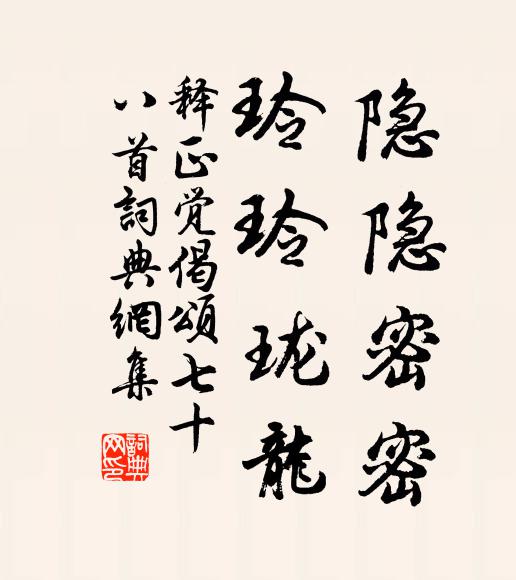 隐隐密密
玲玲珑龍
释正觉偈頌七十
八首詞典網集
詞典网印